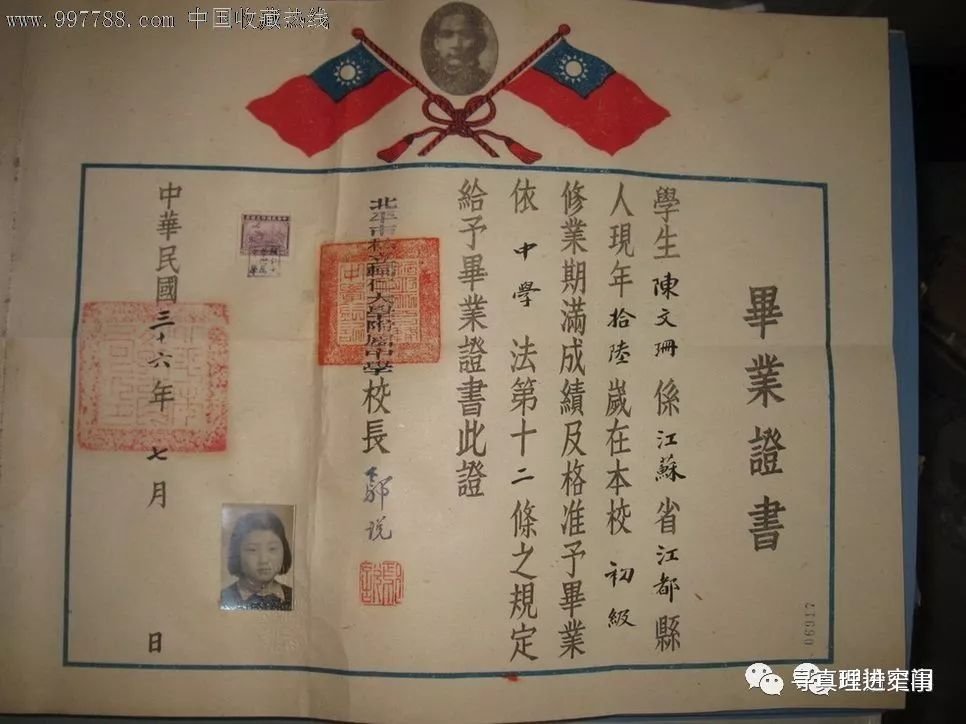 www.997788.com 中国收藏热线
畢業證書
學生陳文珊係江蘇省江都縣
人現年拾陸嵗在本校初級
修業期滿成績及格准予畢業
依中學法第十二條之規定
給予畢業證書此證
北平市私立輔仁大學附屬中學校長
中華民國三十六年七月 日
06917